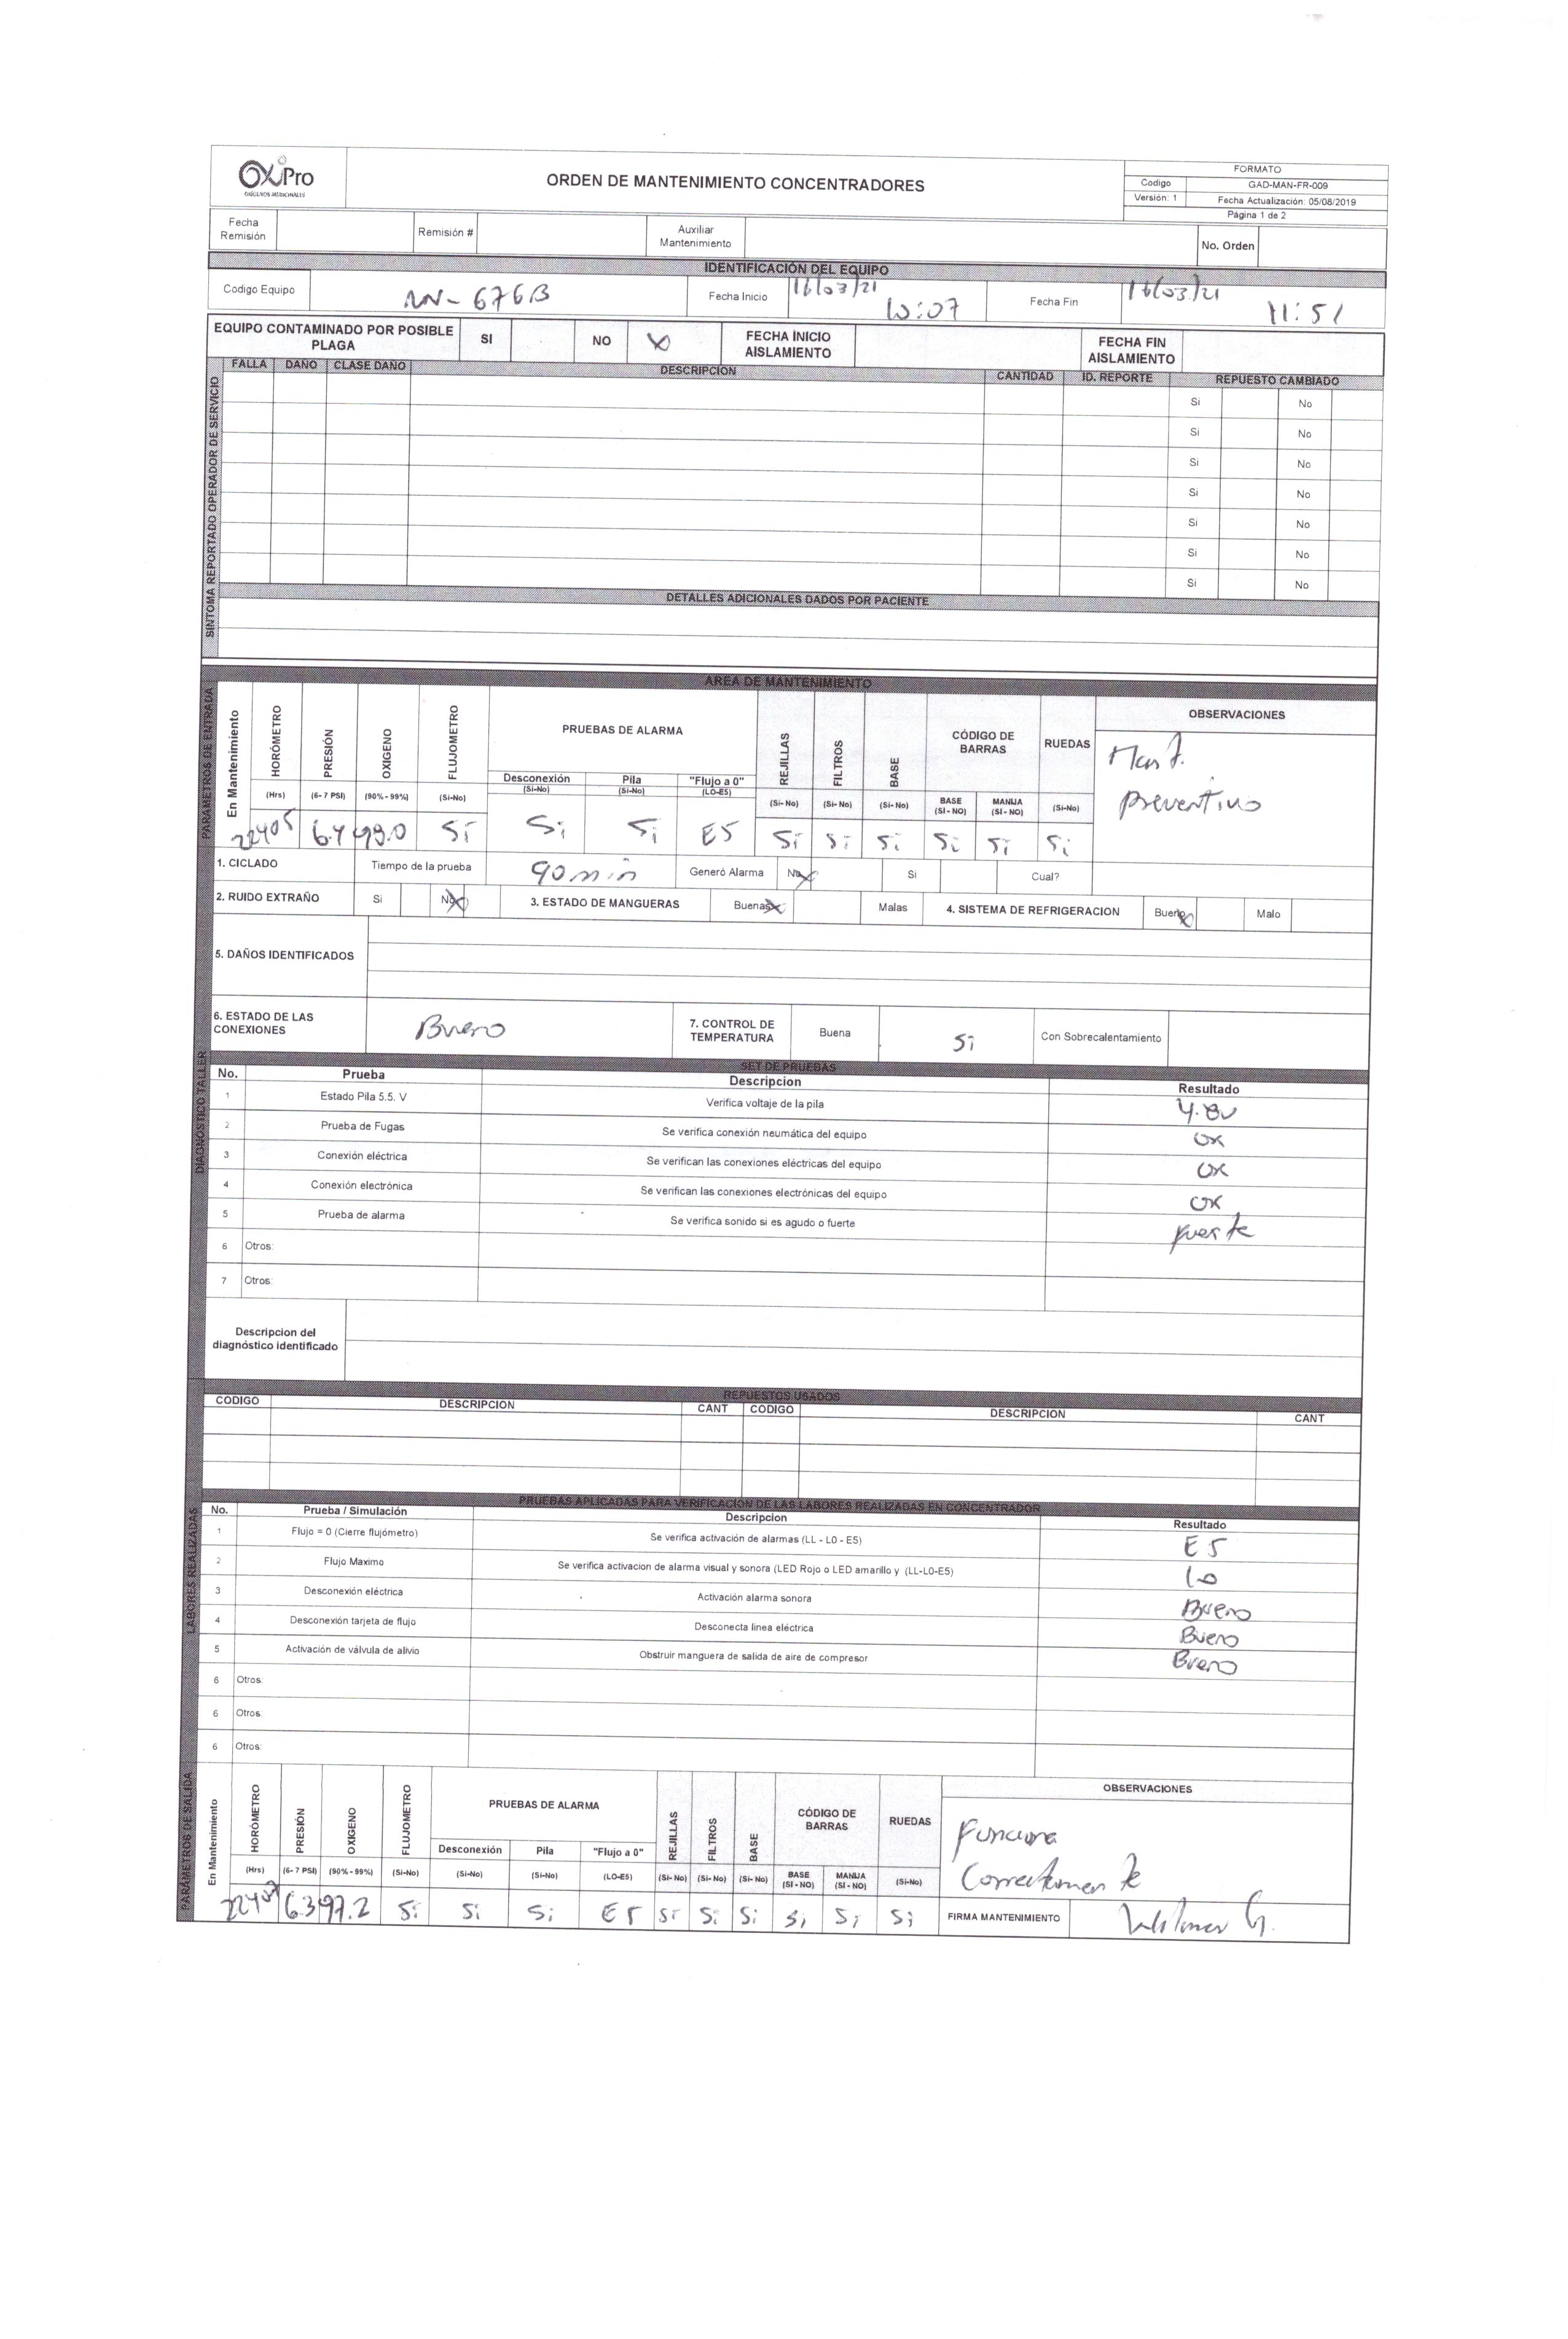 OxiPro
OXÍGENOS MEDICINALES
ORDEN DE MANTENIMIENTO CONCENTRADORES
FORMATO
Codigo GAD-MAN-FR-009
Versión: 1 Fecha Actualización: 05/08/2019
Página 1 de 2
Fecha Remisión Remisión # Auxiliar Mantenimiento No. Orden
IDENTIFICACIÓN DEL EQUIPO
Codigo Equipo 676B Fecha Inicio 16/03/21 10:07 Fecha Fin 16/03/21 11:51
EQUIPO CONTAMINADO POR POSIBLE PLAGA SI NO X FECHA INICIO AISLAMIENTO FECHA FIN AISLAMIENTO
SINTOMA REPORTADO OPERADOR DE SERVICIO
FALLA DAÑO CLASE DAÑO DESCRIPCION CANTIDAD ID. REPORTE REPUESTO CAMBIADO
Si No
Si No
Si No
Si No
Si No
Si No
Si No
DETALLES ADICIONALES DADOS POR PACIENTE
AREA DE MANTENIMIENTO
PARAMETROS DE ENTRADA
En Mantenimiento HORÓMETRO PRESIÓN OXIGENO FLUJOMETRO PRUEBAS DE ALARMA REJILLAS FILTROS BASE CÓDIGO DE BARRAS RUEDAS OBSERVACIONES
Desconexión Pila "Flujo a 0"
(Hrs) (6- 7 PSI) (90% - 99%) (Si-No) (Si-No) (Si-No) (LO-E5) (Si- No) (Si- No) (Si- No) BASE (SI - NO) MANIJA (SI - NO) (Si-No)
22405 6.4 Si Si Si E5 Si Si Si Si Si Si
Mant.
preventivo
1. CICLADO Tiempo de la prueba 90 min Generó Alarma No X Si Cual?
2. RUIDO EXTRAÑO Si No X 3. ESTADO DE MANGUERAS Buenas X Malas 4. SISTEMA DE REFRIGERACION Bueno X Malo
5. DAÑOS IDENTIFICADOS
6. ESTADO DE LAS CONEXIONES Bueno 7. CONTROL DE TEMPERATURA Buena Si Con Sobrecalentamiento
DIAGNOSTICO TALLER
SET DE PRUEBAS
No. Prueba Descripcion Resultado
1 Estado Pila 5.5. V Verifica voltaje de la pila 4.8v
2 Prueba de Fugas Se verifica conexión neumática del equipo OK
3 Conexión eléctrica Se verifican las conexiones eléctricas del equipo OK
4 Conexión electrónica Se verifican las conexiones electrónicas del equipo OK
5 Prueba de alarma Se verifica sonido si es agudo o fuerte fuerte
6 Otros:
7 Otros:
Descripcion del diagnóstico identificado
REPUESTOS USADOS
CODIGO DESCRIPCION CANT CODIGO DESCRIPCION CANT
LABORES REALIZADAS
PRUEBAS APLICADAS PARA VERIFICACION DE LAS LABORES REALIZADAS EN CONCENTRADOR
No. Prueba / Simulación Descripcion Resultado
1 Flujo = 0 (Cierre flujómetro) Se verifica activación de alarmas (LL - L0 - E5) E5
2 Flujo Maximo Se verifica activacion de alarma visual y sonora (LED Rojo o LED amarillo y (LL-L0-E5) Lo
3 Desconexión eléctrica Activación alarma sonora Bueno
4 Desconexión tarjeta de flujo Desconecta linea eléctrica Bueno
5 Activación de válvula de alivio Obstruir manguera de salida de aire de compresor Bueno
6 Otros:
6 Otros:
6 Otros:
PARAMETROS DE SALIDA
En Mantenimiento HORÓMETRO PRESIÓN OXIGENO FLUJOMETRO PRUEBAS DE ALARMA REJILLAS FILTROS BASE CÓDIGO DE BARRAS RUEDAS OBSERVACIONES
Desconexión Pila "Flujo a 0"
(Hrs) (6- 7 PSI) (90% - 99%) (Si-No) (Si-No) (Si-No) (LO-E5) (Si- No) (Si- No) (Si- No) BASE (SI - NO) MANIJA (SI - NO) (Si-No)
Funciona
Correctamente
22407 6.3 97.2 Si Si Si E5 Si Si Si Si Si Si FIRMA MANTENIMIENTO